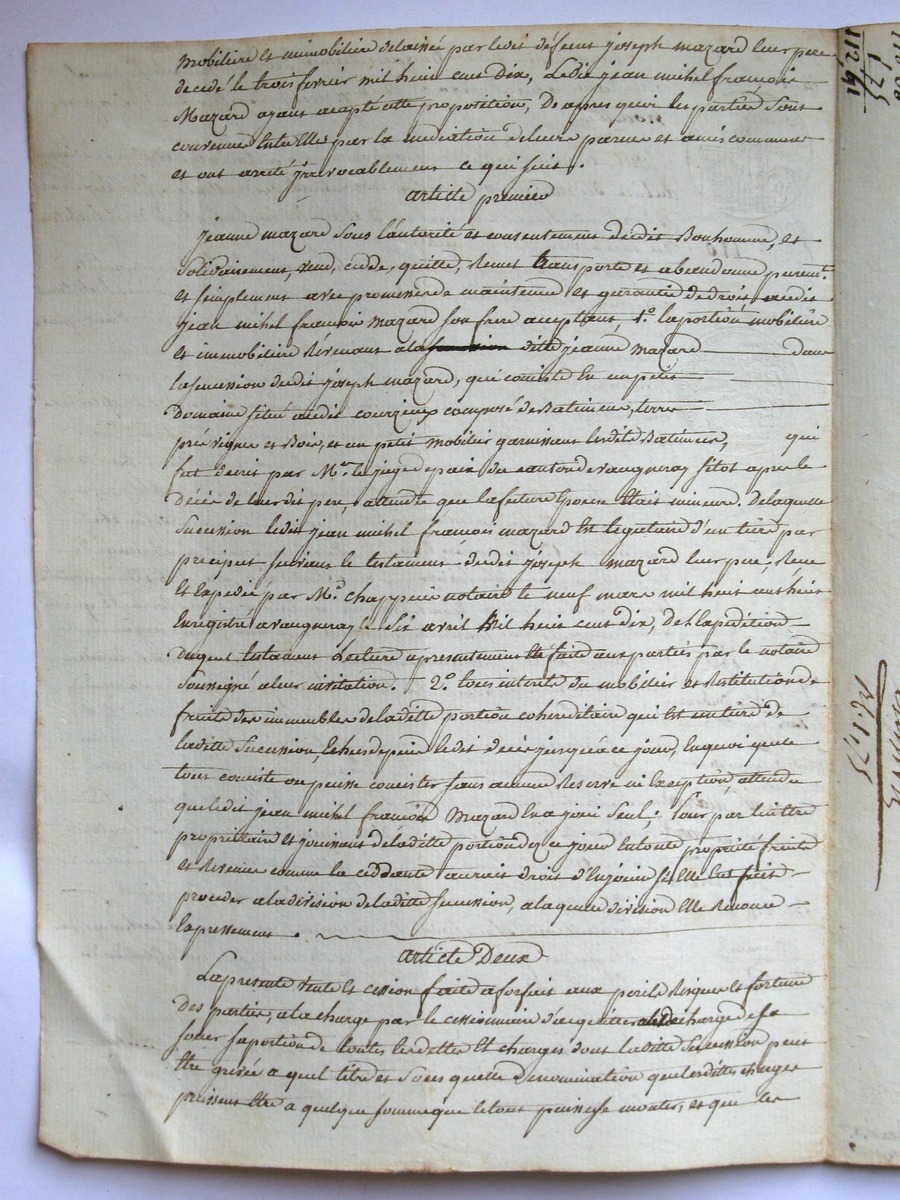 mobiliére et immobiliére delaisseé par ledit défunt joseph mazard leur pere
decedé le trois fevrier mil huit cent dix, Ledit jean michel françois
Mazard ayant acepté cette proposition, De apres quoi les parties Sont
convenue Entre Elles par la mediation de leurs parens et amis communs
et ont arreté jrrevocablement ce qui suit.
article premier
jeanne mazard Sous lautorité et consentement dudit Bonhomme, et
Solidairement, vend, cédde, quitte, Remet transporte et abandonne purem.t
et simplement avec promesse de maintenue et garantie de droit audit
jean michel françois mazard son frere aceptant, 1.º la portion mobiliére
et immobiliére Revenant a la ditte jeanne mazard dans
la sucession dudit joseph mazard, qui consiste En un petit
Domaine situé audit courzieux composé de Batimens, terres
prés vignes et Bois, et un petit mobilier garnissant lesdits Batimens, qui
fut décrit par Mr. le juge de paix du canton de vaugneray sitot apres le
Décès de leurdit pere, attendu que la future Epouse Etait mineure. De laquelle
Sucession ledit jean michel françois mazard Est légataire d'un tiers par
preciput suivant le testament dudit joseph mazard leur pere, Reçu
Et Expedié par Me. chapperie notaire le neuf mars mil huit cent huit
Enregistré a vaugneray le Six avril Mil huit cent dix, de l'Expedition
duquel testament lecture a presentement Eté faite aux parties par le notaire
Soussigné a leur invitation. 2.º tous interets du mobilier et Restitution de
fruits des immeubles de la ditte portion cohereditaire qui Est un tiers de
la ditte Sucession, Echus depuis ledit décès jusqu'a ce jour, En quoi que le
tout consiste ou puisse consister sans aucune Reserve ni Exception, attendu
que ledit jean michel françois Mazard En a joui Seul; Pour par lui Etre
propriétaire et jouissant de la ditte portion dez ce jour En toute propriété fruits
et Revenus comme la céddante auroit droit d'En jouir si Elle Eut fait
proceder a la division de la ditte sucession, a laquelle division Elle Renonce
Expressement.
article Deux
La presente vente Et cession faite a forfait aux perils Risques et fortune
des parties, a la charge par le cessionnaire d'acquitter a la décharge de sa
soeur sa portion de toutes les dettes Et charges dont la ditte Sucession peut
Etre grevée a quel titre et Sous quelle Denomination que lesdittes charges
puissent Etre a quelque somme que le tout puisse monter, et que les